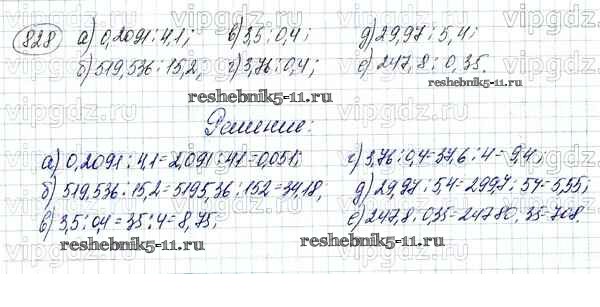 828) а) 0,2091 : 4,1; в) 3,5 : 0,4; д) 29,97 : 5,4;
б) 519,536 : 15,2; г) 3,76 : 0,4; е) 247,8 : 0,35.
reshebnik5-11.ru
reshebnik5-11.ru
Решение:
а) 0,2091 : 4,1 = 2,091 : 41 = 0,051; г) 3,76 : 0,4 = 37,6 : 4 = 9,4;
б) 519,536 : 15,2 = 5195,36 : 152 = 34,18; д) 29,97 : 5,4 = 299,7 : 54 = 5,55;
в) 3,5 : 0,4 = 35 : 4 = 8,75; е) 247,8 : 0,35 = 24780 : 35 = 708.
reshebnik5-11.ru
reshebnik5-11.ru